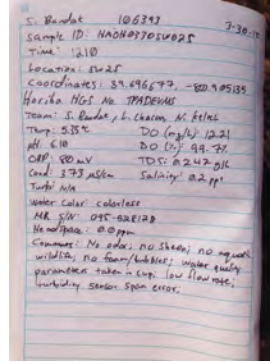 S. Bandak 106393 3-30-
Sample ID: HAOH0330SW025
Time: 1210
Location: SW25
Coordinates: 39.696577, -80.905135
Horiba HGS No.
Team: S. Bandak, L. Chacon, N.
Temp: 5.35°C DO (mg/L): 12.21
pH: 6.10 DO (%): 99.7%
ORP: 80 mV TDS: 0.242 g/L
Cond: 373 µS/cm Salinity: 0.2 ppt
Turb: N/A
Water Color: colorless
MR S/N: 095-528128
Headspace: 0.0 ppm
Comments: No odor; no sheen; no aquatic
wildlife; no foam/bubbles; water quality
parameters taken in cup; low flow rate;
turbidity sensor span error.